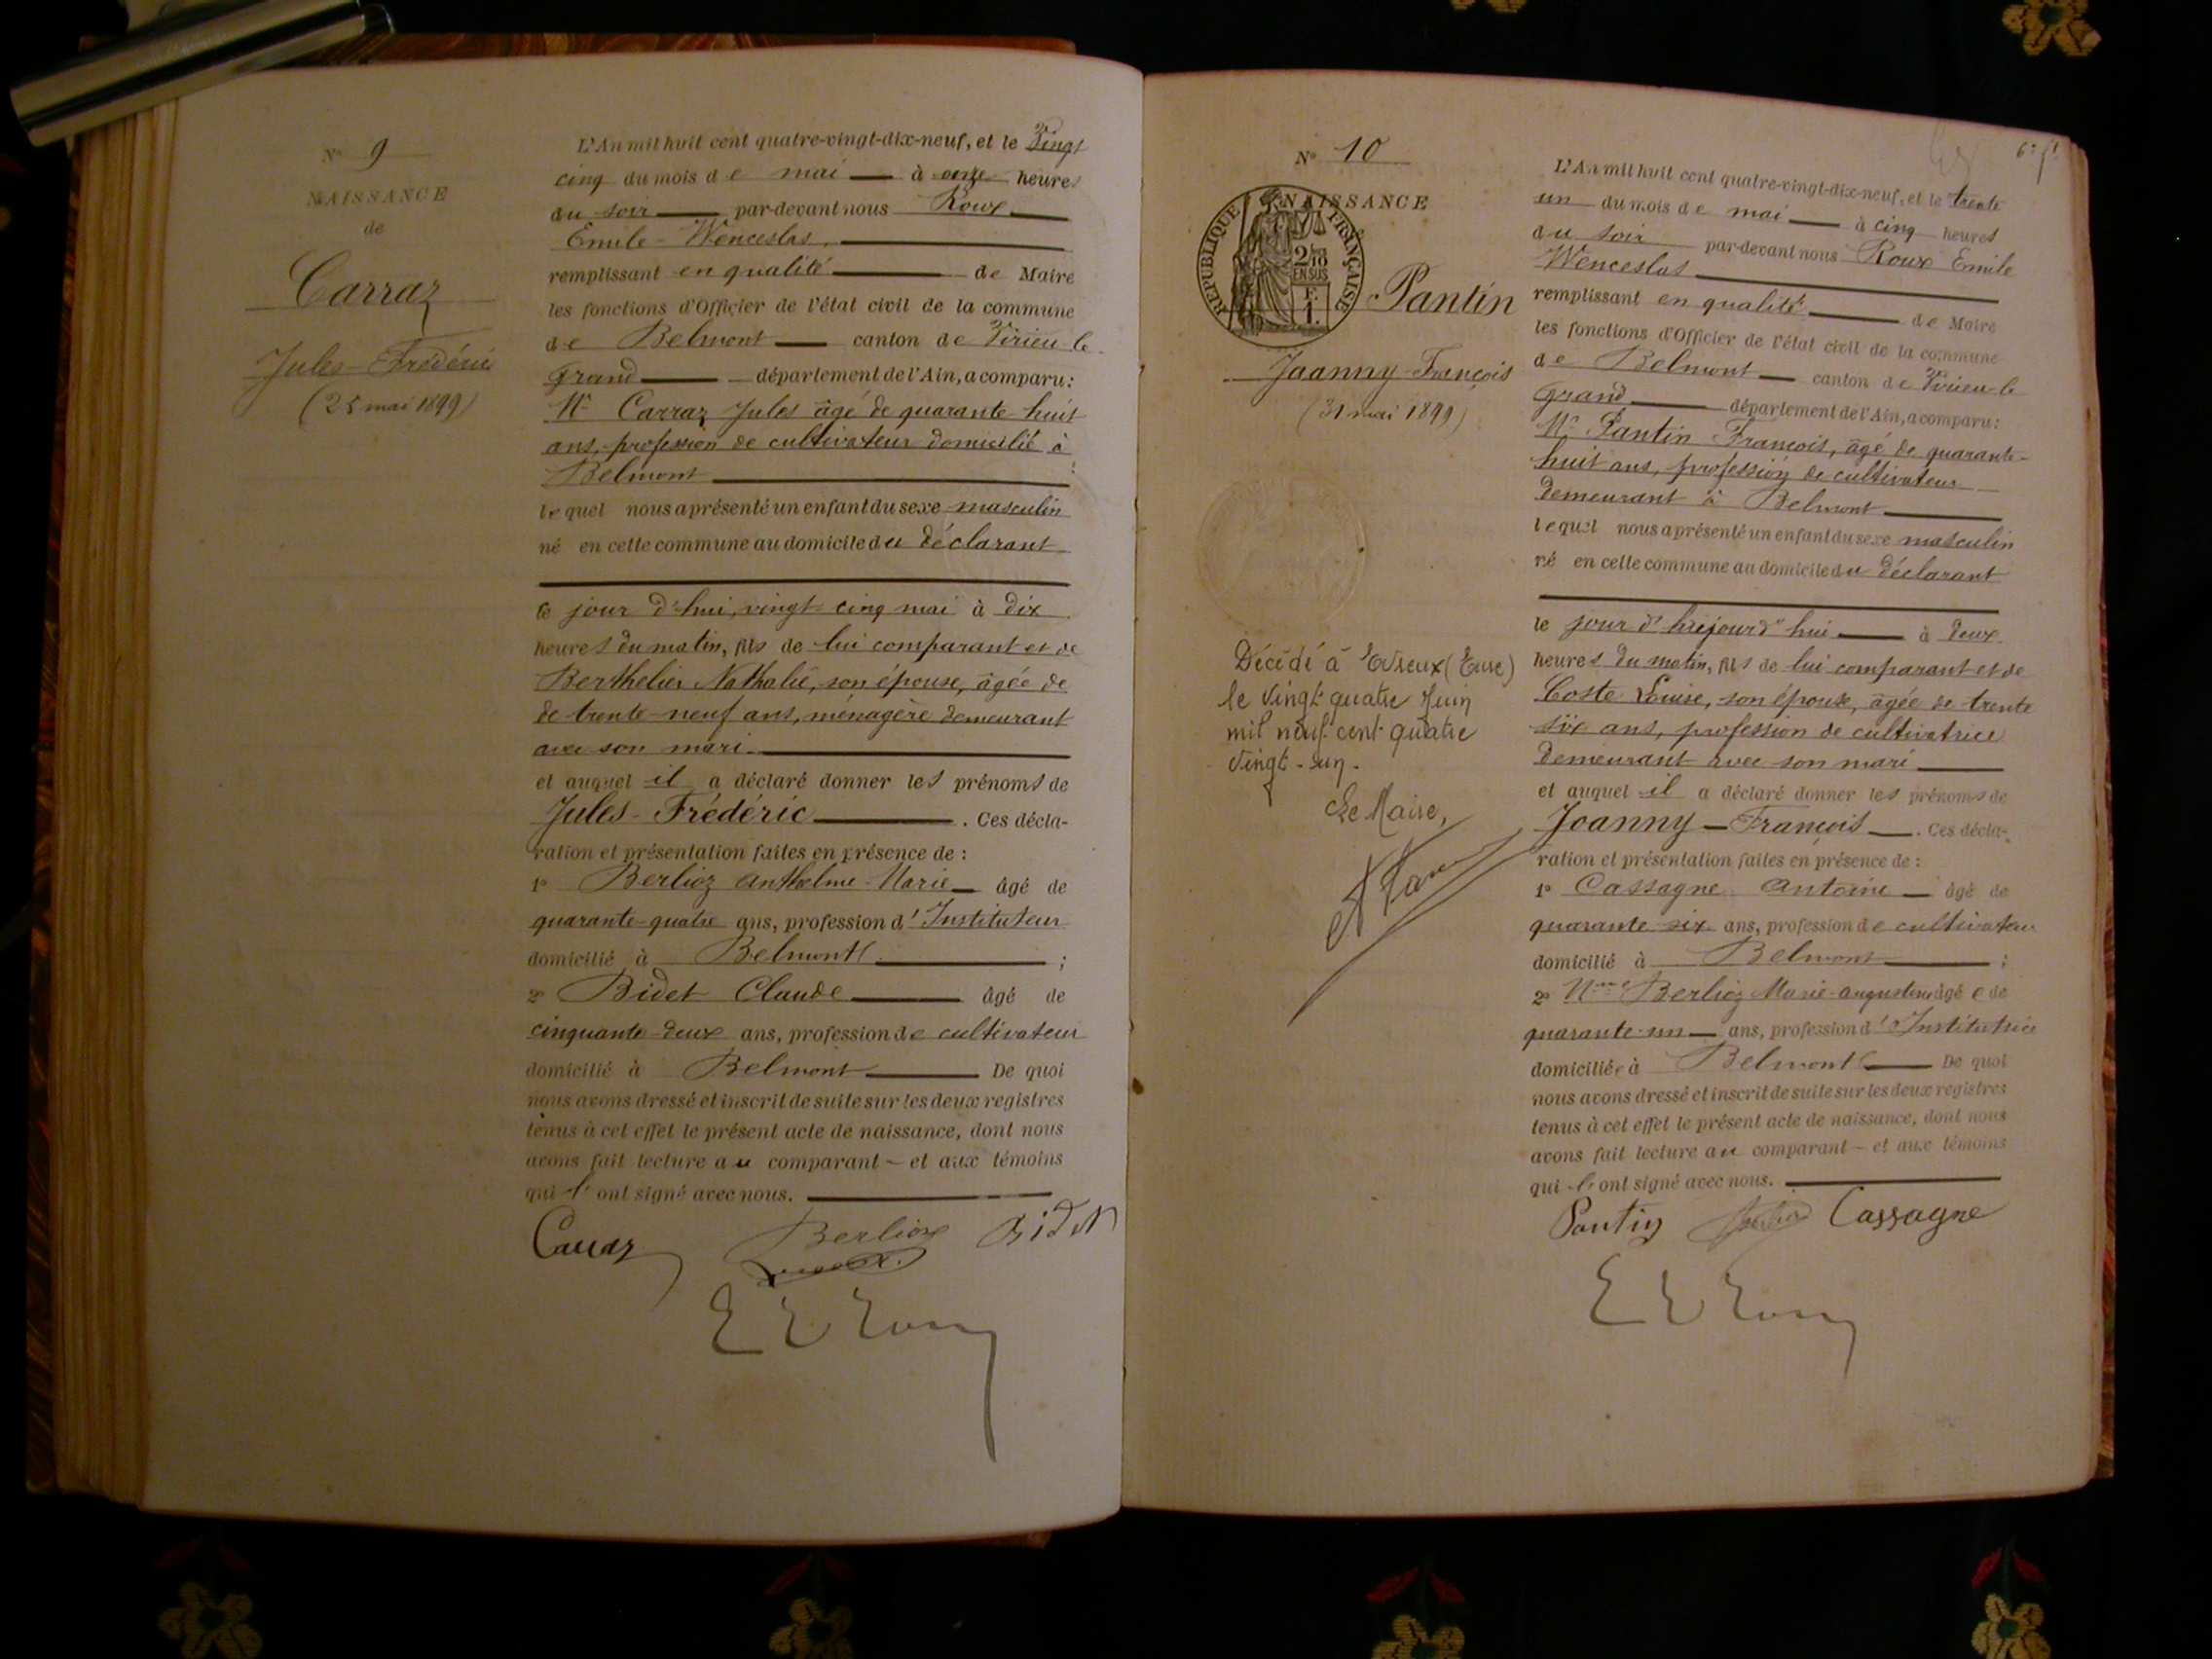 N° 9
NAISSANCE
de
Carraz
Jules-Frédéric
(25 mai 1899)
L'An mil huit cent quatre-vingt-dix-neuf, et le Vingt
cinq du mois de mai à onze heures
du soir par-devant nous Roux
Emile-Wenceslas,
remplissant en qualité de Maire
les fonctions d'Officier de l'état civil de la commune
de Belmont canton de Virieu-le-
grand département de l'Ain, a comparu:
Mr Carraz Jules âgé de quarante-huit
ans, profession de cultivateur domicilié à
Belmont ;
lequel nous a présenté un enfant du sexe masculin
né en cette commune au domicile du déclarant
ce jour d'hui, vingt cinq mai à dix
heures du matin, fils de lui comparant et de
Berthelier Nathalie, son épouse, âgée de
de trente-neuf ans, ménagère demeurant
avec son mari.
et auquel il a déclaré donner les prénoms de
Jules-Frédéric . Ces décla-
ration et présentation faites en présence de :
1° Berlioz Anthelme-Marie âgé de
quarante-quatre ans, profession d'Instituteur
domicilié à Belmont ;
2° Bidet Claude âgé de
cinquante-deux ans, profession de cultivateur
domicilié à Belmont De quoi
nous avons dressé et inscrit de suite sur les deux registres
tenus à cet effet le présent acte de naissance, dont nous
avons fait lecture au comparant - et aux témoins
qui l'ont signé avec nous.
Carraz Berlioz Bidet
E W Roux
N° 10
NAISSANCE
REPUBLIQUE FRANÇAISE
2/10
EN SUS
F.
1.
Pantin
Joanny-François
(31 mai 1899)
Décédé à Evreux (Eure)
le vingt quatre Juin
mil neuf cent quatre
vingt-un.
Le Maire,
6e ft
L'An mil huit cent quatre-vingt-dix-neuf, et le trente
un du mois de mai à cinq heures
du soir par-devant nous Roux Emile
Wenceslas
remplissant en qualité de Maire
les fonctions d'Officier de l'état civil de la commune
de Belmont canton de Virieu-le
grand département de l'Ain, a comparu:
Mr Pantin François, âgé de quarante-
huit ans, profession de cultivateur
demeurant à Belmont
lequel nous a présenté un enfant du sexe masculin
né en cette commune au domicile du déclarant
le jour d'hui à deux
heures du matin, fils de lui comparant et de
Coste Louise, son épouse, âgée de trente
six ans, profession de cultivatrice
demeurant avec son mari
et auquel il a déclaré donner les prénoms de
Joanny-François . Ces décla-
ration et présentation faites en présence de :
1° Cassagne Antoine âgé de
quarante six ans, profession de cultivateur
domicilié à Belmont ;
2° Mme Berlioz Marie-Augustine âgée de
quarante-un ans, profession d'Institutrice
domiciliée à Belmont De quoi
nous avons dressé et inscrit de suite sur les deux registres
tenus à cet effet le présent acte de naissance, dont nous
avons fait lecture au comparant - et aux témoins
qui l'ont signé avec nous.
Pantin Cassagne
E W Roux